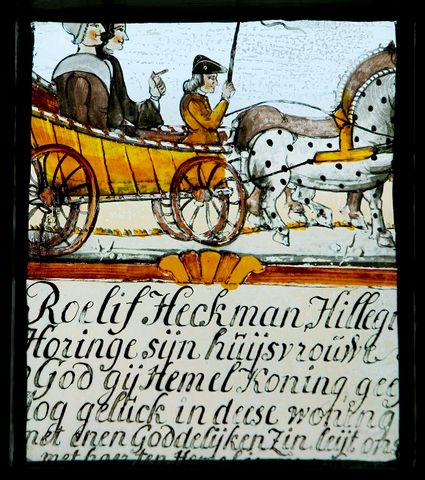 Roelif Heckman, Hillegr
Horinge sijn huijsvrouwe
God gij Hemel Koning, gee
log geluck in deese woning
met enen Goddelijken Zin. leijt ons
met haer ten